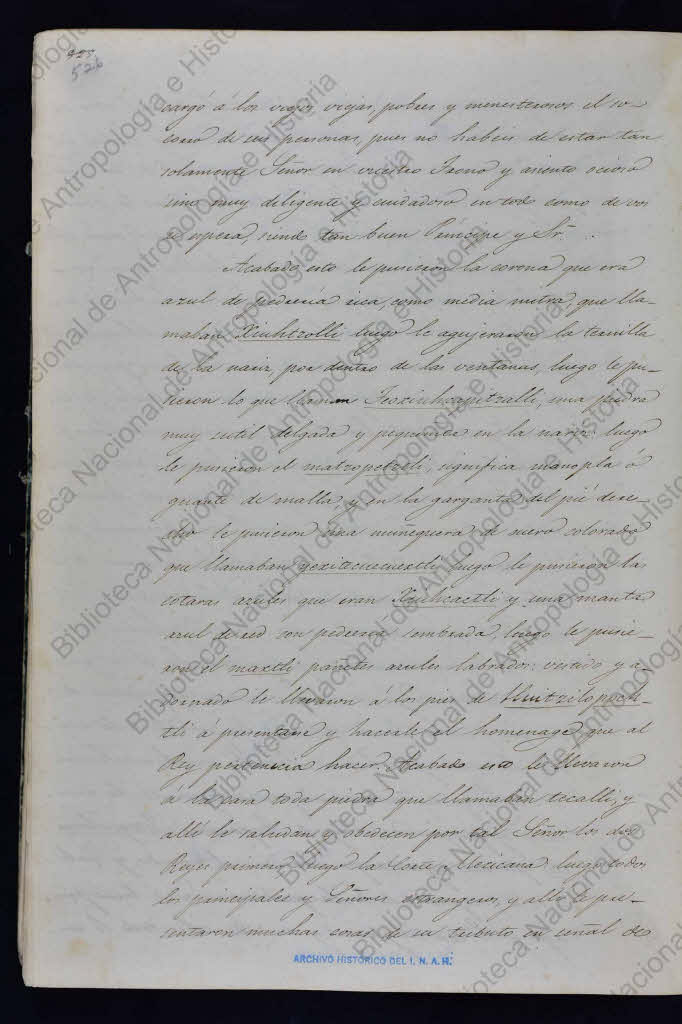 525
526
cargó á los viejos viejas, pobres y menesterosos el so-
corro de sus personas, pues no habeis de estar tan
solamente Señor en vuestro Trono y asiento ocioso
sino muy deligente y cuidadoso en todo como de vos
se espera, siendo tan buen Principe y Sr.
Acabado esto le pusieron la corona que era
azul de pedrería rica, como media mitra, que lla-
maban Xiuhtzolli luego le agujeraron la ternilla
de la nariz, por dentro de las ventanas, luego le pu-
sieron lo que llaman Teoxiuhcapitzalli, una piedra
muy sutil delgada y pequeñica en la nariz: luego
le pusieron el matzopetztli, significa manopla ó
guante de malla y en la garganta del pié dere-
cho le pusieron una muñequera de cuero colorado
que llamaban yexitecuecuextli luego le pusieron las
cotaras azules que eran Xiuhcactli y una manta
azul de red con pedreria sembrada, luego le pusie-
ron el maxtli pañetes azules labrados: vestido y a-
dornado le llevaron á los pies de Huitzilopoch-
tli á presentarse y hacerle el homenage que al
Rey pertenecia hacer. Acabado esto le llevaron
á la casa toda piedra que llamaban tecalli, y
allí le saludan y obedecen por tal Señor los dos
Reyes primero, luego la Corte Mexicana luego todos
los principales y Señores estrangeros, y allí le pre-
sentaron muchas cosas de su tributo en señal de
ARCHIVO HISTORICO DEL I. N. A. H.
Biblioteca Nacional de Antropología e Historia